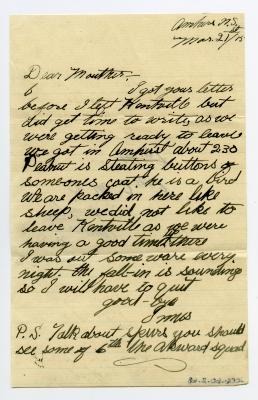 Amherst N.S.
Mar. 21/15
Dear Mouther:-
I got your letter
before I left Kentville but
did get time to write, as we
were getting ready to leave
we got in Amhurst about 2.30
Peanut is steating buttons of
someones coat. he is a bird
We are packed in here like
sheep, we did not like to
leave Kentville as we were
having a good time there
I was out some ware every
night. the fall-in is sounding
so I will have to quit
good-bye
P.S. Talk about spurs you should
see some of 6th the akward squad